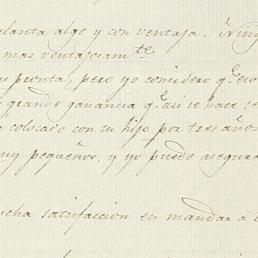 elanta algo y con ventaja. Ning
mas ventajosam.te
pronta, pero yo considero q.e eso
grande ganancia q.e asi se hace
colocado con su hijo por tres años
uy pequeños, y yo puedo asegura
ucha satisfaccion en mandar a